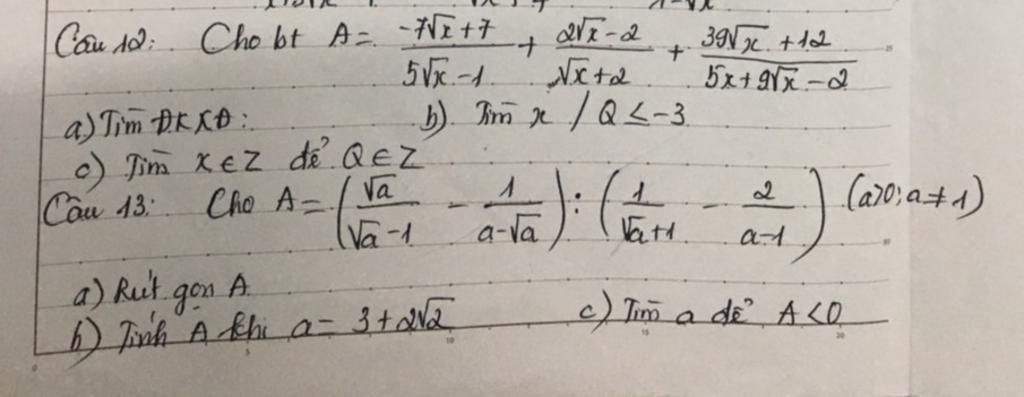 Câu 12: Cho bt A = \frac{-7\sqrt{x}+7}{5\sqrt{x}-1} + \frac{2\sqrt{x}-2}{\sqrt{x}+2} + \frac{39\sqrt{x}+12}{5x+9\sqrt{x}-2}
a) Tìm ĐKXĐ: b) Tìm x / Q ≤ -3
c) Tìm x ∈ Z để Q ∈ Z
Câu 13: Cho A = \left(\frac{\sqrt{a}}{\sqrt{a}-1} - \frac{1}{a-\sqrt{a}}\right) : \left(\frac{1}{\sqrt{a}+1} - \frac{2}{a-1}\right) (a>0; a ≠ 1)
a) Rút gọn A
b) Tính A khi a = 3+2\sqrt{2} c) Tìm a để A < 0